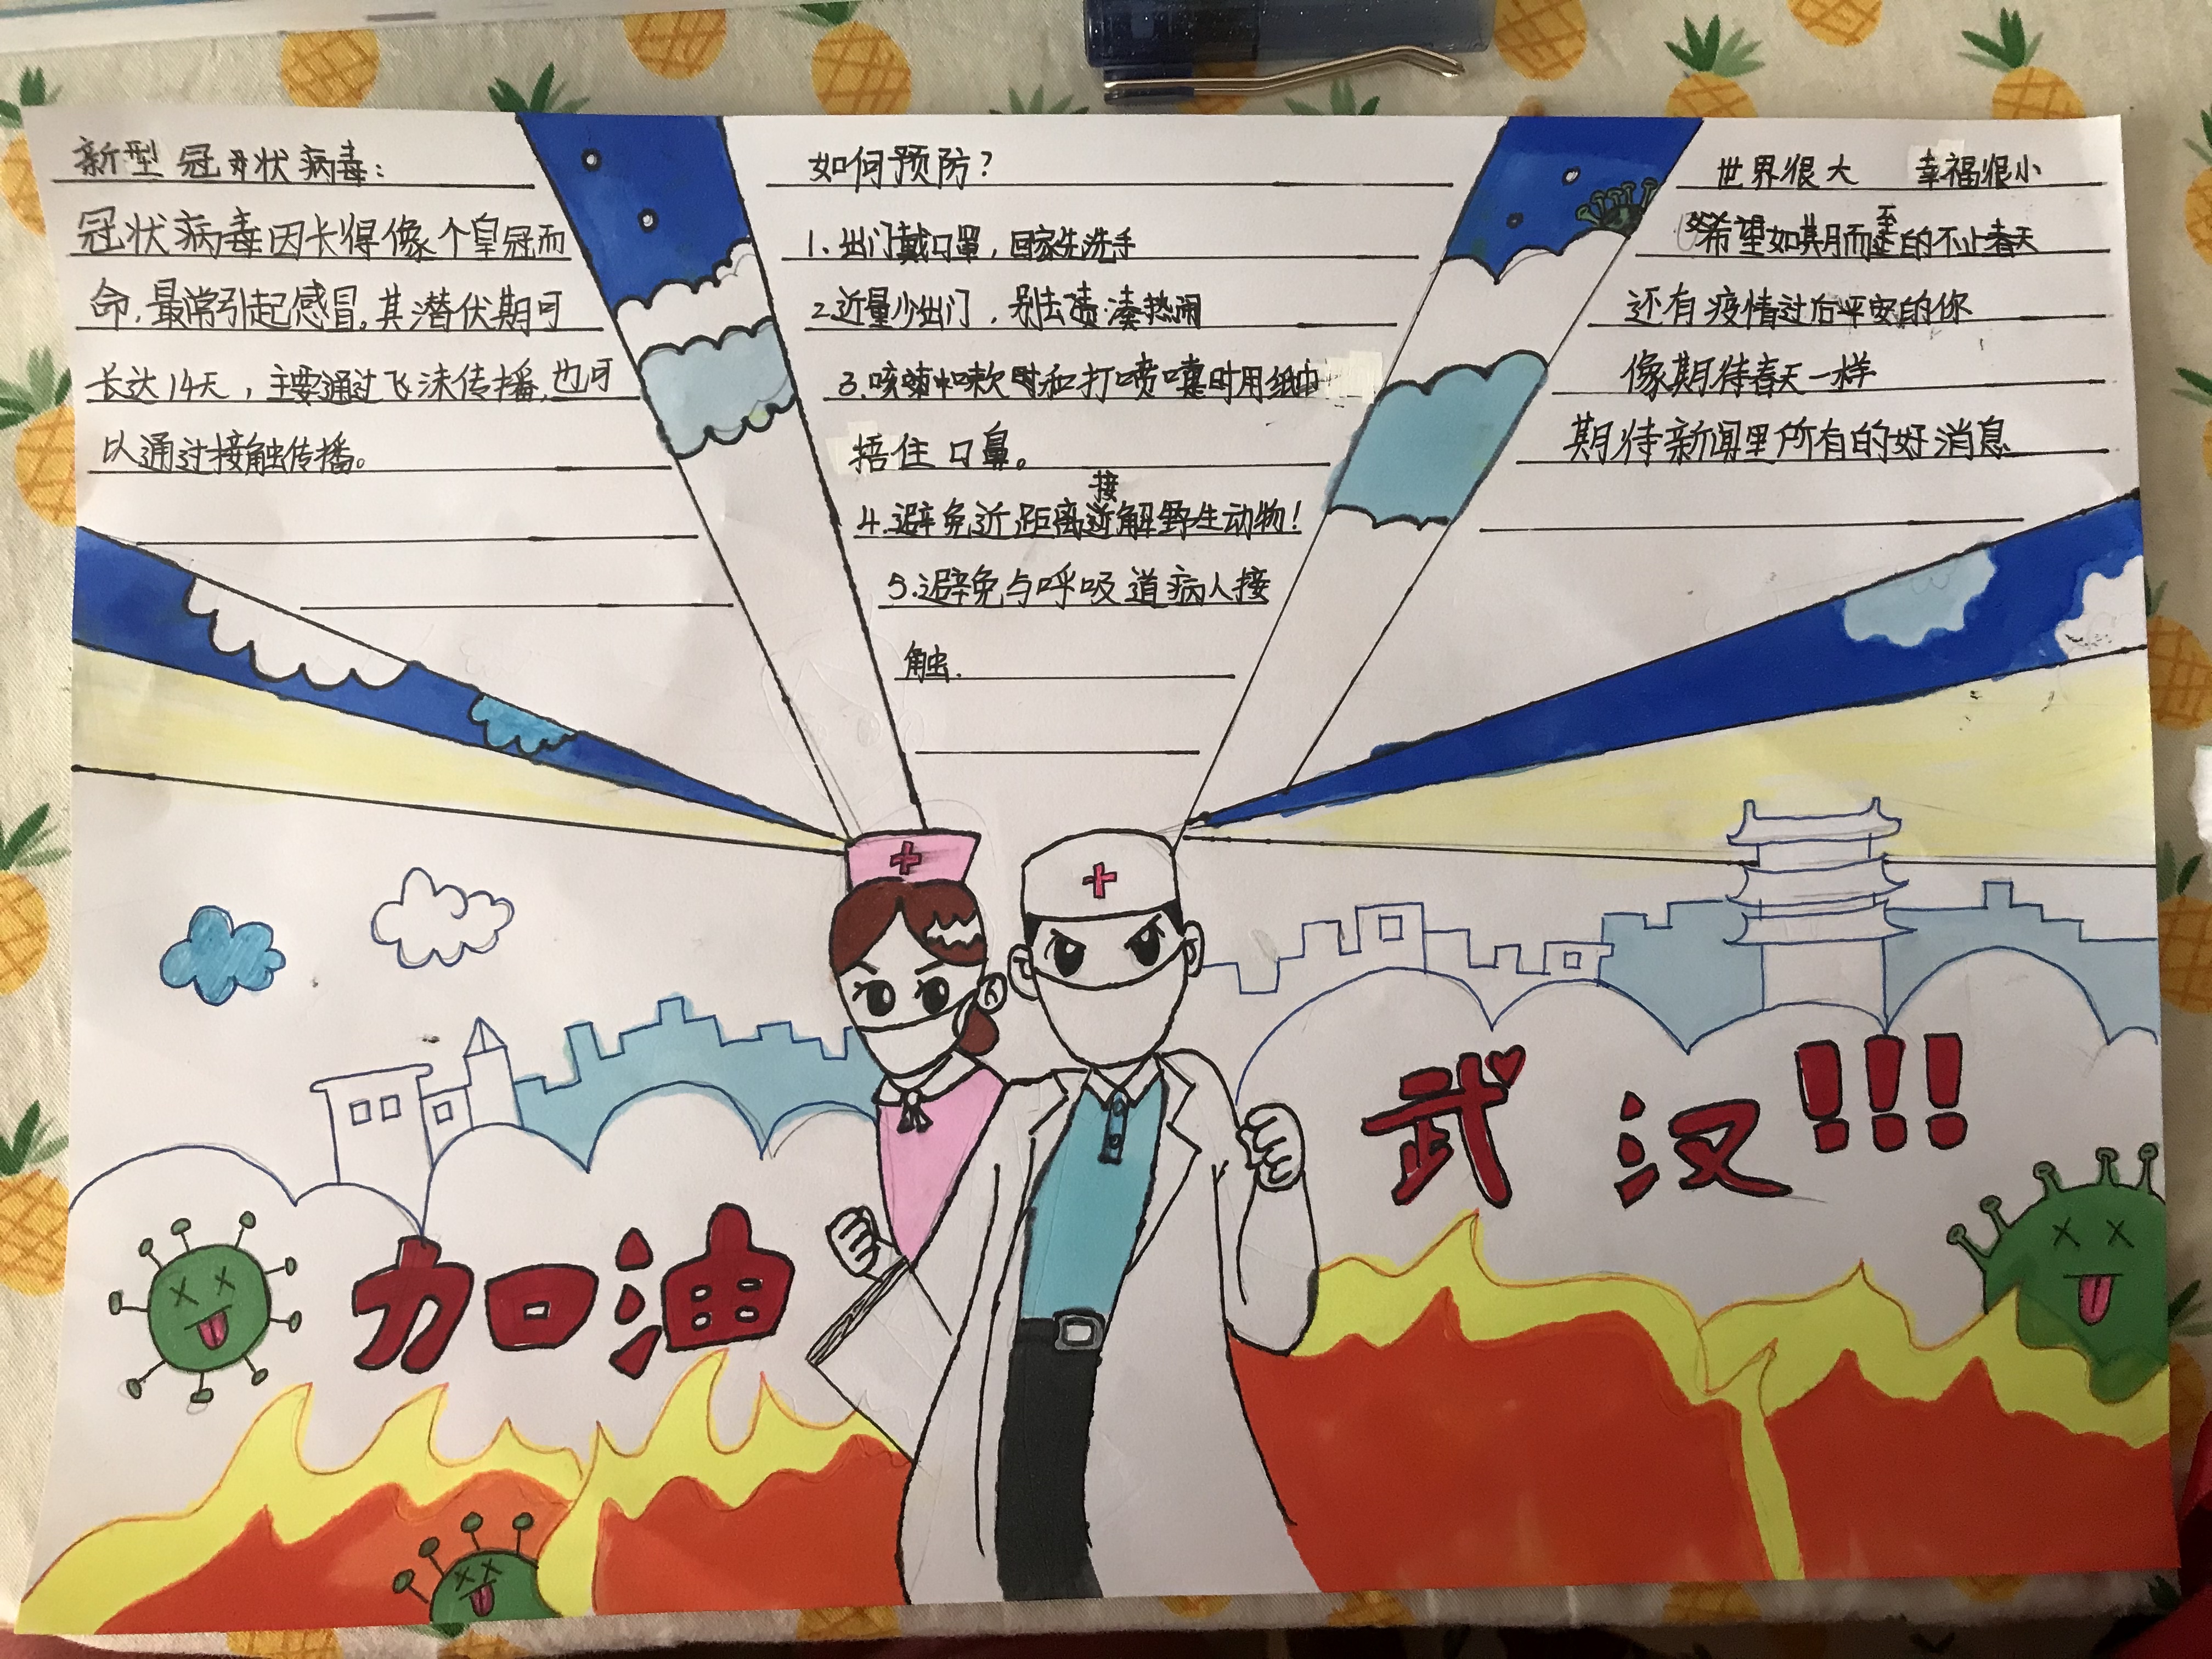 新型冠状病毒：
冠状病毒因长得像个皇冠而
命，最常引起感冒。其潜伏期可
长达14天，主要通过飞沫传播，也可
以通过接触传播。
如何预防？
1.出门戴口罩，回家先洗手
2.近量少出门，别去凑热闹
3.咳嗽时和打喷嚏时用纸巾
捂住口鼻。
4.避免近距离接解野生动物！
5.避免与呼吸道病人接
触.
世界很大 幸福很小
希望如期而至的不止春天
还有疫情过后平安的你
像期待春天一样
期待新闻里所有的好消息
加油
武汉!!!